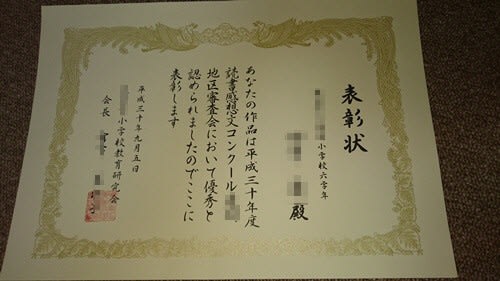 表彰状
小学校六学年
殿
あなたの作品は平成三十年度
読書感想文コンクール
地区審査会において優秀と
認められましたのでここに
表彰します
平成三十年九月五日
小学校教育研究会
会長